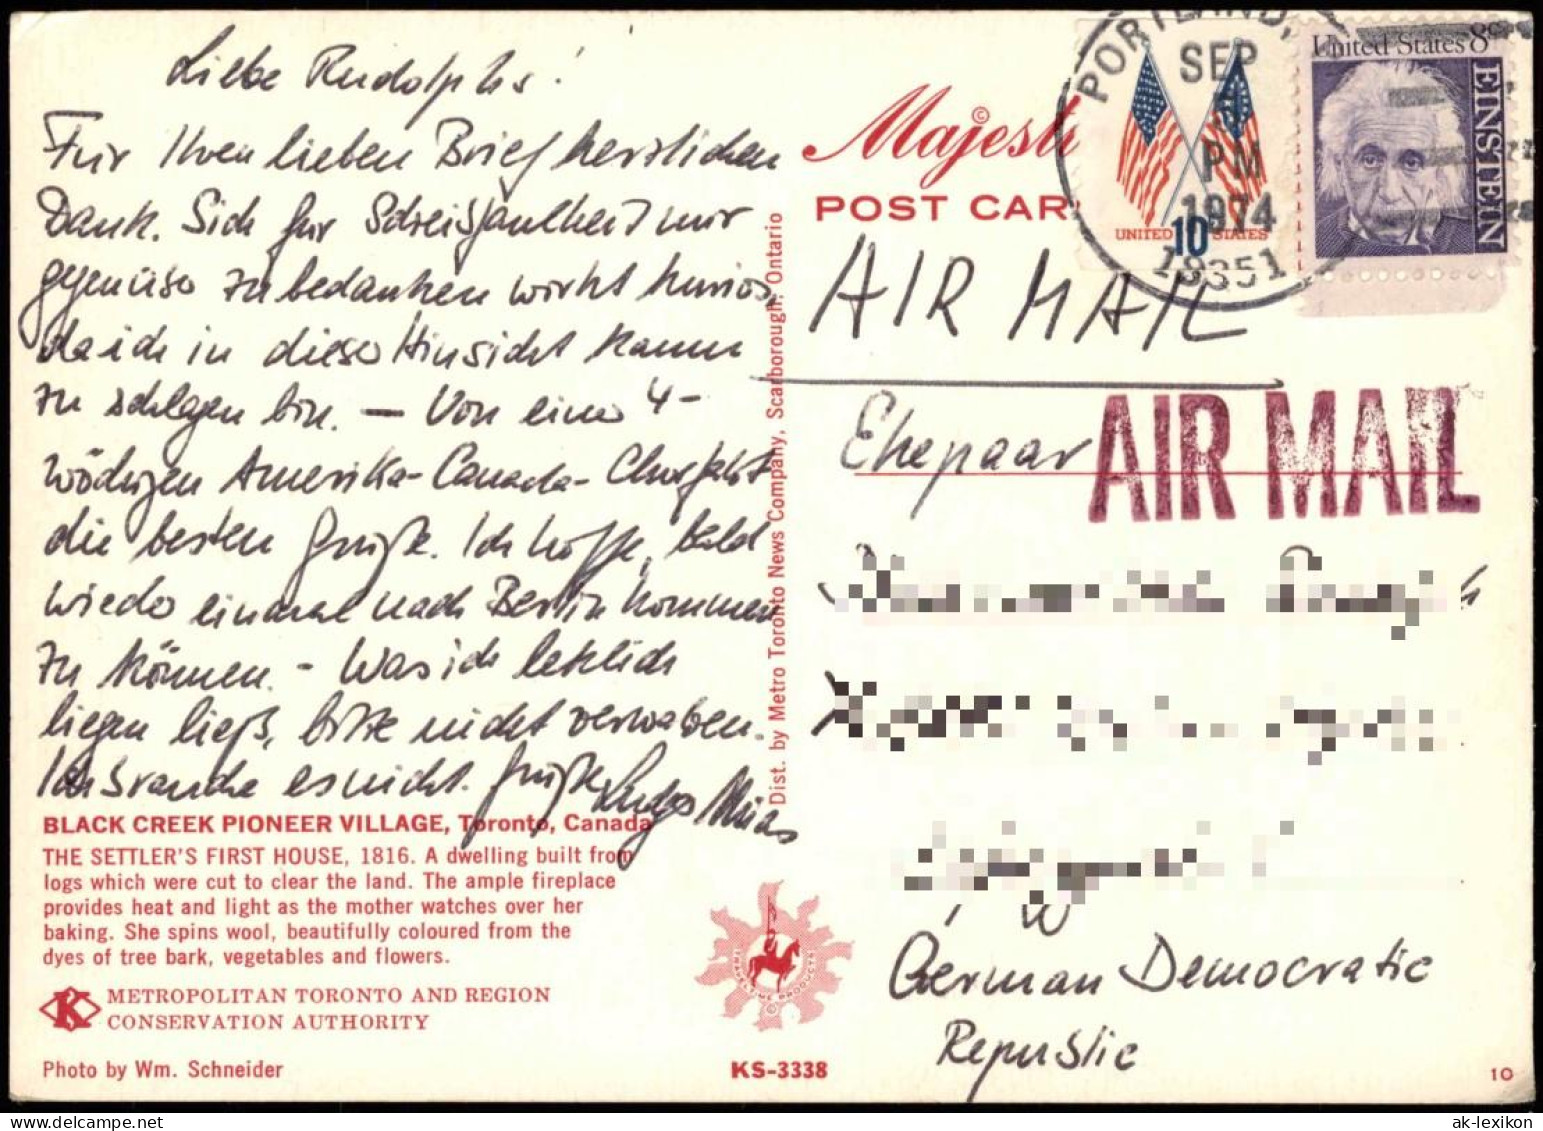 Liebe Rudolphs!
Für Ihren lieben Brief herzlichen
Dank. Sich für Schreibfaulheit mir
gegenüber zu bedanken wirkt kurios,
da ich in dieser Hinsicht kaum
zu schlagen bin. — Von einer 4-
wöchigen Amerika-Canada-Chorfahrt
die besten Grüße. Ich hoffe, bald
wieder einmal nach Berlin kommen
zu können. - Was ich letztlich
liegen ließ, bitte nicht verwahren.
Ich brauche es nicht. Grüße
BLACK CREEK PIONEER VILLAGE, Toronto, Canada
THE SETTLER'S FIRST HOUSE, 1816. A dwelling built from
logs which were cut to clear the land. The ample fireplace
provides heat and light as the mother watches over her
baking. She spins wool, beautifully coloured from the
dyes of tree bark, vegetables and flowers.
METROPOLITAN TORONTO AND REGION
CONSERVATION AUTHORITY
Photo by Wm. Schneider
Dist. by Metro Toronto News Company, Scarborough, Ontario
Majesti
©
POST CAR
PORTLAND,
SEP
PM
1974
19351
UNITED 10 STATES
United States 8c
EINSTEIN
AIR MAIL
Ehepaar
AIR MAIL
German Democratic
Republic
TRAVELTIME PRODUCTS
©
K
KS-3338
10
ak-lexikon.com